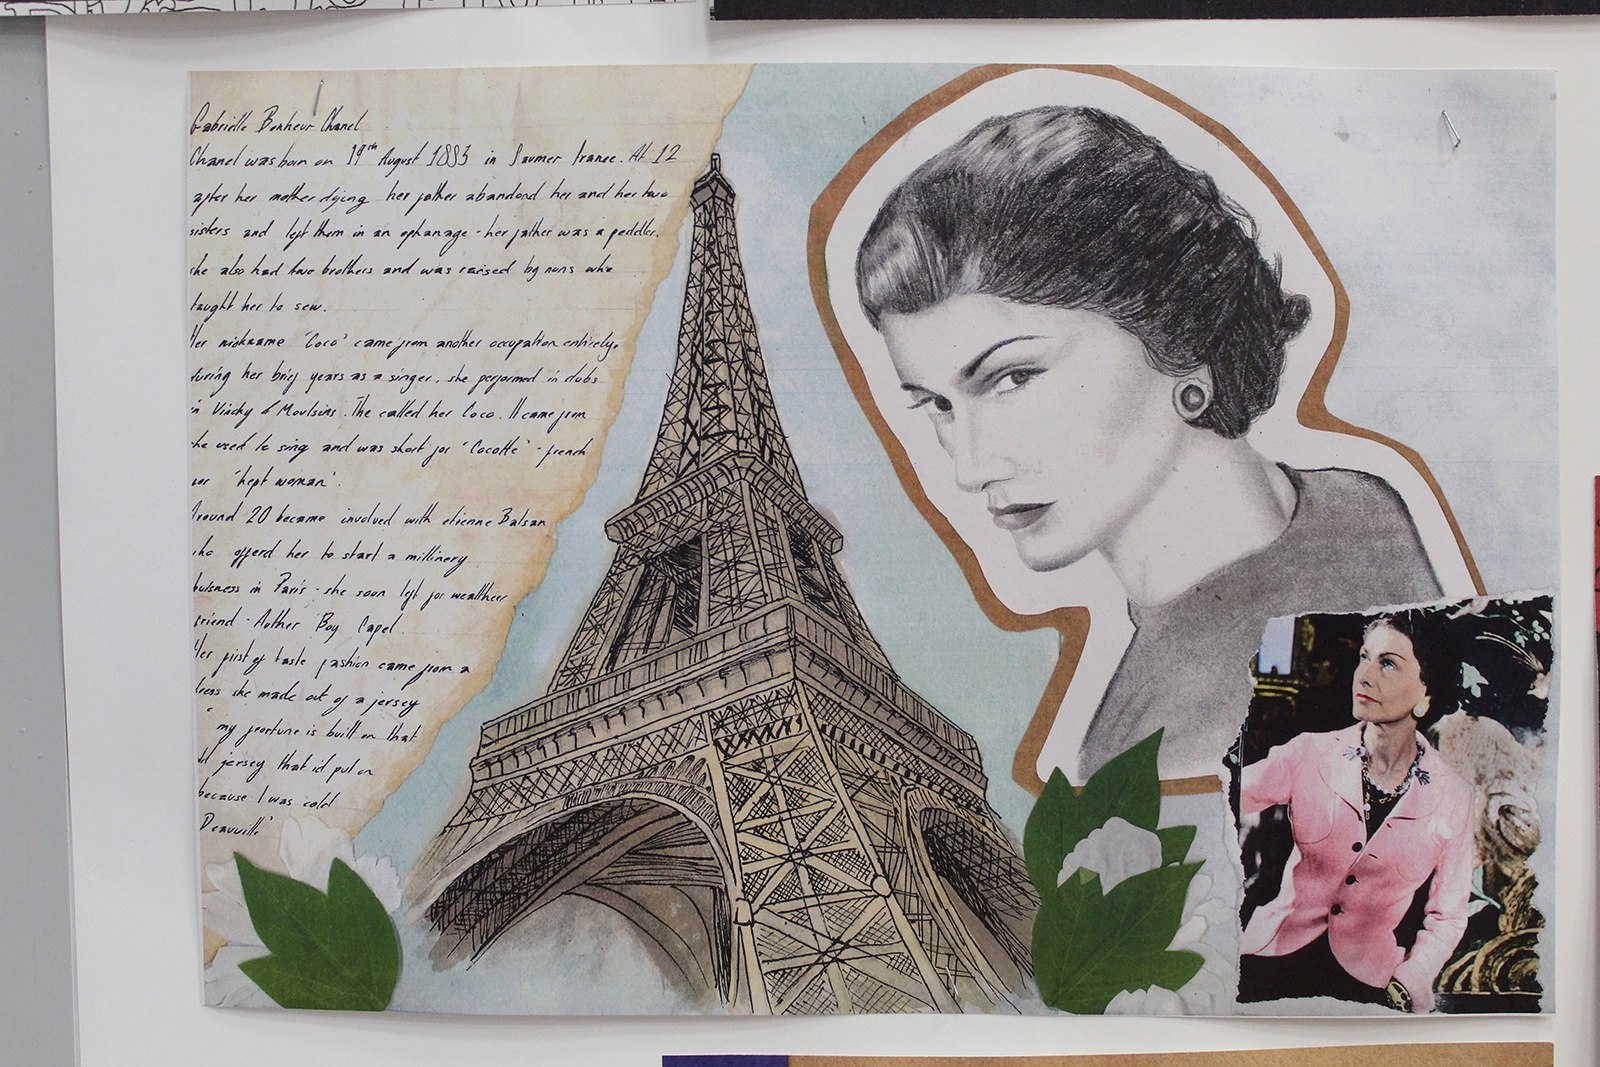 Gabrielle Bonheur Chanel
Chanel was born on 19th August 1883 in Saumer france. At 12
after her mother dying her father abandond her and her two
sisters and left them in an ophanage - her father was a peddler.
he also had two brothers and was raised by nuns who
taught her to sew.
Her nickname 'Coco' came from another occupation entirelye
during her brief years as a singer, she performed in clubs
in Vichy & Moulsins. The called her Coco. It came from
he used to sing and was short for 'Cocotte' - french
for 'kept woman'.
Around 20 became involved with etienne Balsan
who offerd her to start a millinery
buisness in Paris - she soon left for wealtheer
friend - Auther Boy Capel.
Her first of taste fashion came from a
dress she made out of a jersey
" my feortune is built on that
old jersey that id put on
because I was cold
Deauville'